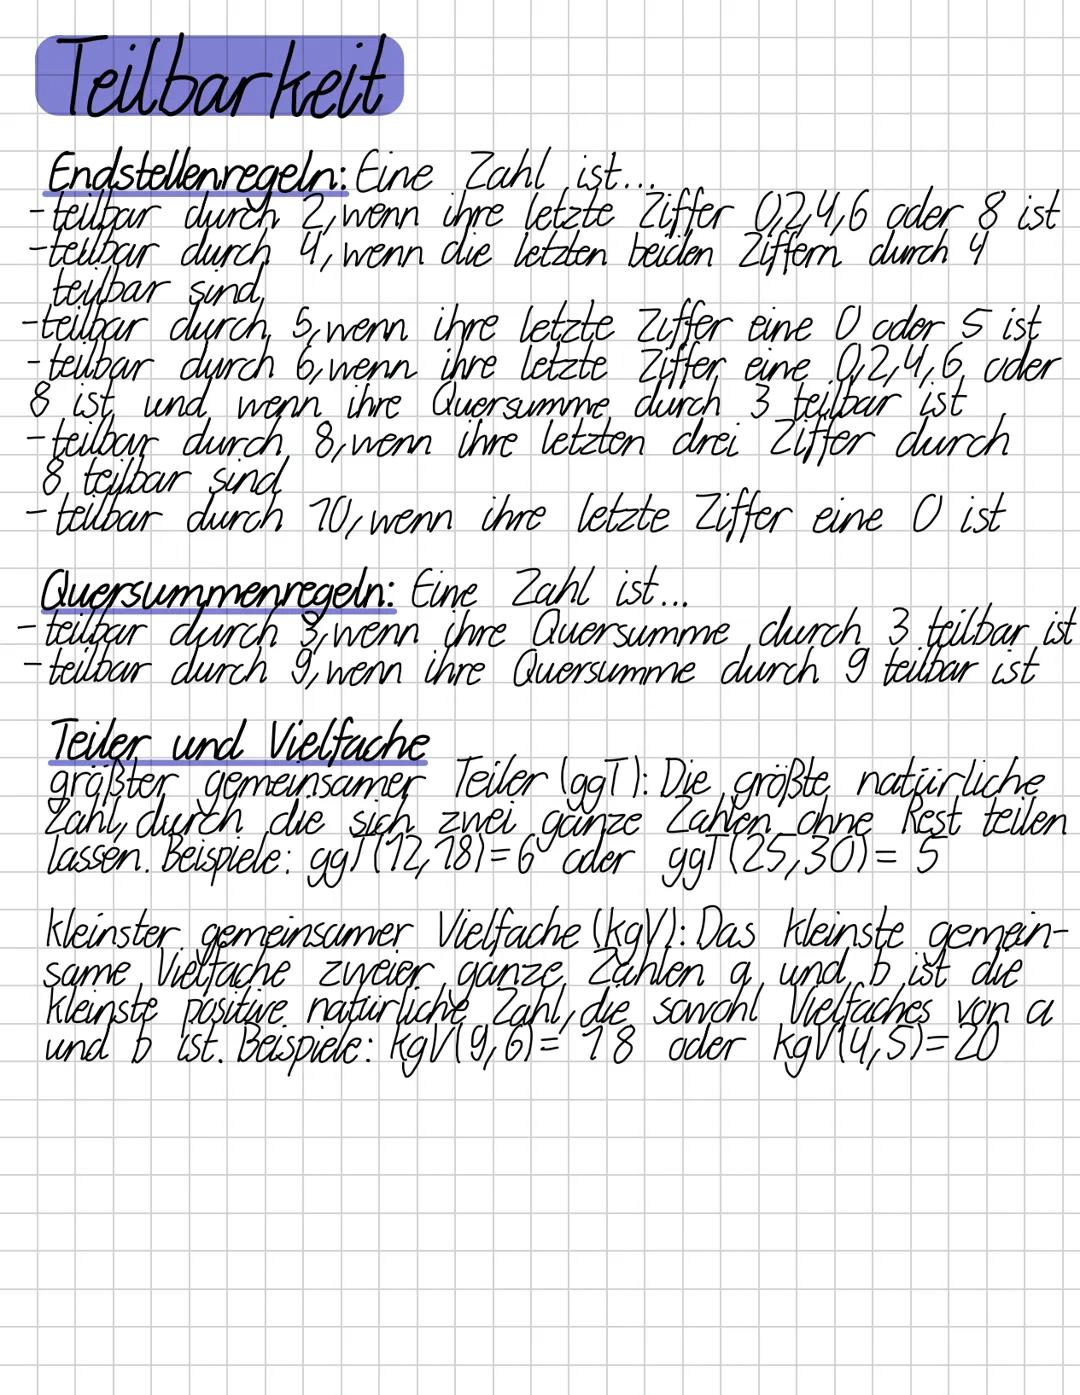 Teilbarkeit
Endstellenregeln: Eine Zahl ist...
-teilbar durch 2, wenn ihre letzte Ziffer 0,2,4,6 oder 8 ist
-teilbar durch 4, wenn die letzten beiden Ziffern durch 4
teilbar sind
-teilbar durch 5, wenn ihre letzte Ziffer eine 0 oder 5 ist
-teilbar durch 6, wenn ihre letzte Ziffer eine 0,2,4,6 oder
8 ist und wenn ihre Quersumme durch 3 teilbar ist
-teilbar durch 8, wenn ihre letzten drei Ziffer durch
8 teilbar sind
-teilbar durch 10, wenn ihre letzte Ziffer eine 0 ist
Quersummenregeln: Eine Zahl ist...
-teilbar durch 3, wenn ihre Quersumme durch 3 teilbar ist
-teilbar durch 9, wenn ihre Quersumme durch 9 teilbar ist
Teiler und Vielfache
größter gemeinsamer Teiler (ggT): Die größte natürliche
Zahl, durch die sich zwei ganze Zahlen ohne Rest teilen
lassen. Beispiele: ggT(12,18)=6 oder ggT(25,30)= 5
kleinster gemeinsamer Vielfache (kgV): Das kleinste gemein-
same Vielfache zweier ganze Zahlen a und b ist die
kleinste positive natürliche Zahl, die sowohl Vielfaches von a
und b ist. Beispiele: kgV(9,6)= 18 oder kgV(4,5)=20